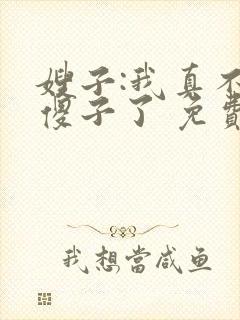 嫂子:我真不
傻子了 免費
我想當咸鱼